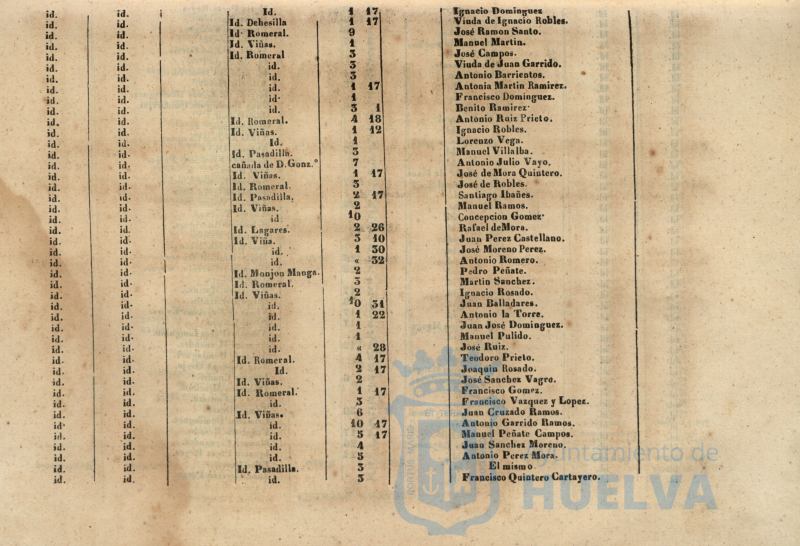 id. id. Id. 1 17 Ignacio Dominguez
id. id. Id. Dehesilla 1 17 Viuda de Ignacio Robles.
id. id. Id. Romeral. 9 José Ramon Santo.
id. id. Id. Viñas. 1 Manuel Martin.
id. id. Id. Romeral 3 José Campos.
id. id. id. 3 Viuda de Juan Garrido.
id. id. id. 3 Antonio Barrientos.
id. id. id. 1 17 Antonia Martin Ramirez.
id. id. id. 1 Francisco Dominguez.
id. id. id. 3 1 Benito Ramirez.
id. id. Id. Romeral. 4 18 Antonio Ruiz Prieto.
id. id. Id. Viñas. 1 12 Ignacio Robles.
id. id. Id. 1 Lorenzo Vega.
id. id. Id. Pasadilla. 3 Manuel Villalba.
id. id. cañada de D. Gonz.º 7 Antonio Julio Vayo.
id. id. Id. Viñas. 1 17 José de Mora Quintero.
id. id. Id. Romeral. 3 José de Robles.
id. id. Id. Pasadilla. 2 17 Santiago Ibañes.
id. id. Id. Viñas. 2 Manuel Ramos.
id. id. id 10 Concepcion Gomez.
id. id. Id. Lagares. 2 26 Rafael deMora.
id. id. Id. Viña. 3 10 Juan Perez Castellano.
id. id. id. 1 30 José Moreno Perez.
id. id. id. « 32 Antonio Romero.
id. id. Id. Monjon Manga. 2 Pedro Peñate.
id. id. Id. Romeral. 3 Martin Sanchez.
id. id. Id. Viñas. 2 Ignacio Rosado.
id. id. id. 10 31 Juan Balladares.
id. id. id. 1 22 Antonio la Torre.
id. id. id. 1 Juan José Dominguez.
id. id. id. 1 Manuel Pulido.
id. id. id. « 28 José Ruiz.
id. id. Id. Romeral. 4 17 Teodoro Prieto.
id. id. Id. 2 17 Joaquin Rosado.
id. id. Id. Viñas. 2 José Sanchez Vagro.
id. id. Id. Romeral. 1 17 Francisco Gomez.
id. id. id. 3 Francisco Vazquez y Lopez.
id. id. Id. Viñas. 6 Juan Cruzado Ramos.
id. id. id. 10 17 Antonio Garrido Ramos.
id. id. id. 5 17 Manuel Peñate Campos.
id. id. id. 4 Juan Sanchez Moreno.
id. id. id. 5 Antonio Perez Mora.
id. id. Id. Pasadilla. 3 El mismo
id. id. id. 3 Francisco Quintero Cartayero.
Ayuntamiento de
HUELVA